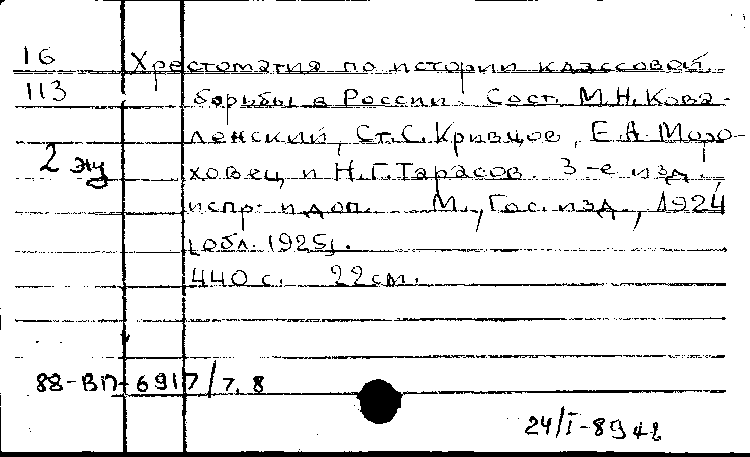 16
Хрестоматия по истории классовой
113
борьбы в России. Сост. М.Н. Кова-
ленский, Ст. С. Кривцов, Е.А. Моро-
2 эку
ховец и Н.Г. Тарасов. 3-е изд.,
испр. и доп. М., Гос. изд., 1924
[обл. 1925].
440 с. 22 см.
88-ВП-6917/7, 8
24/I-89